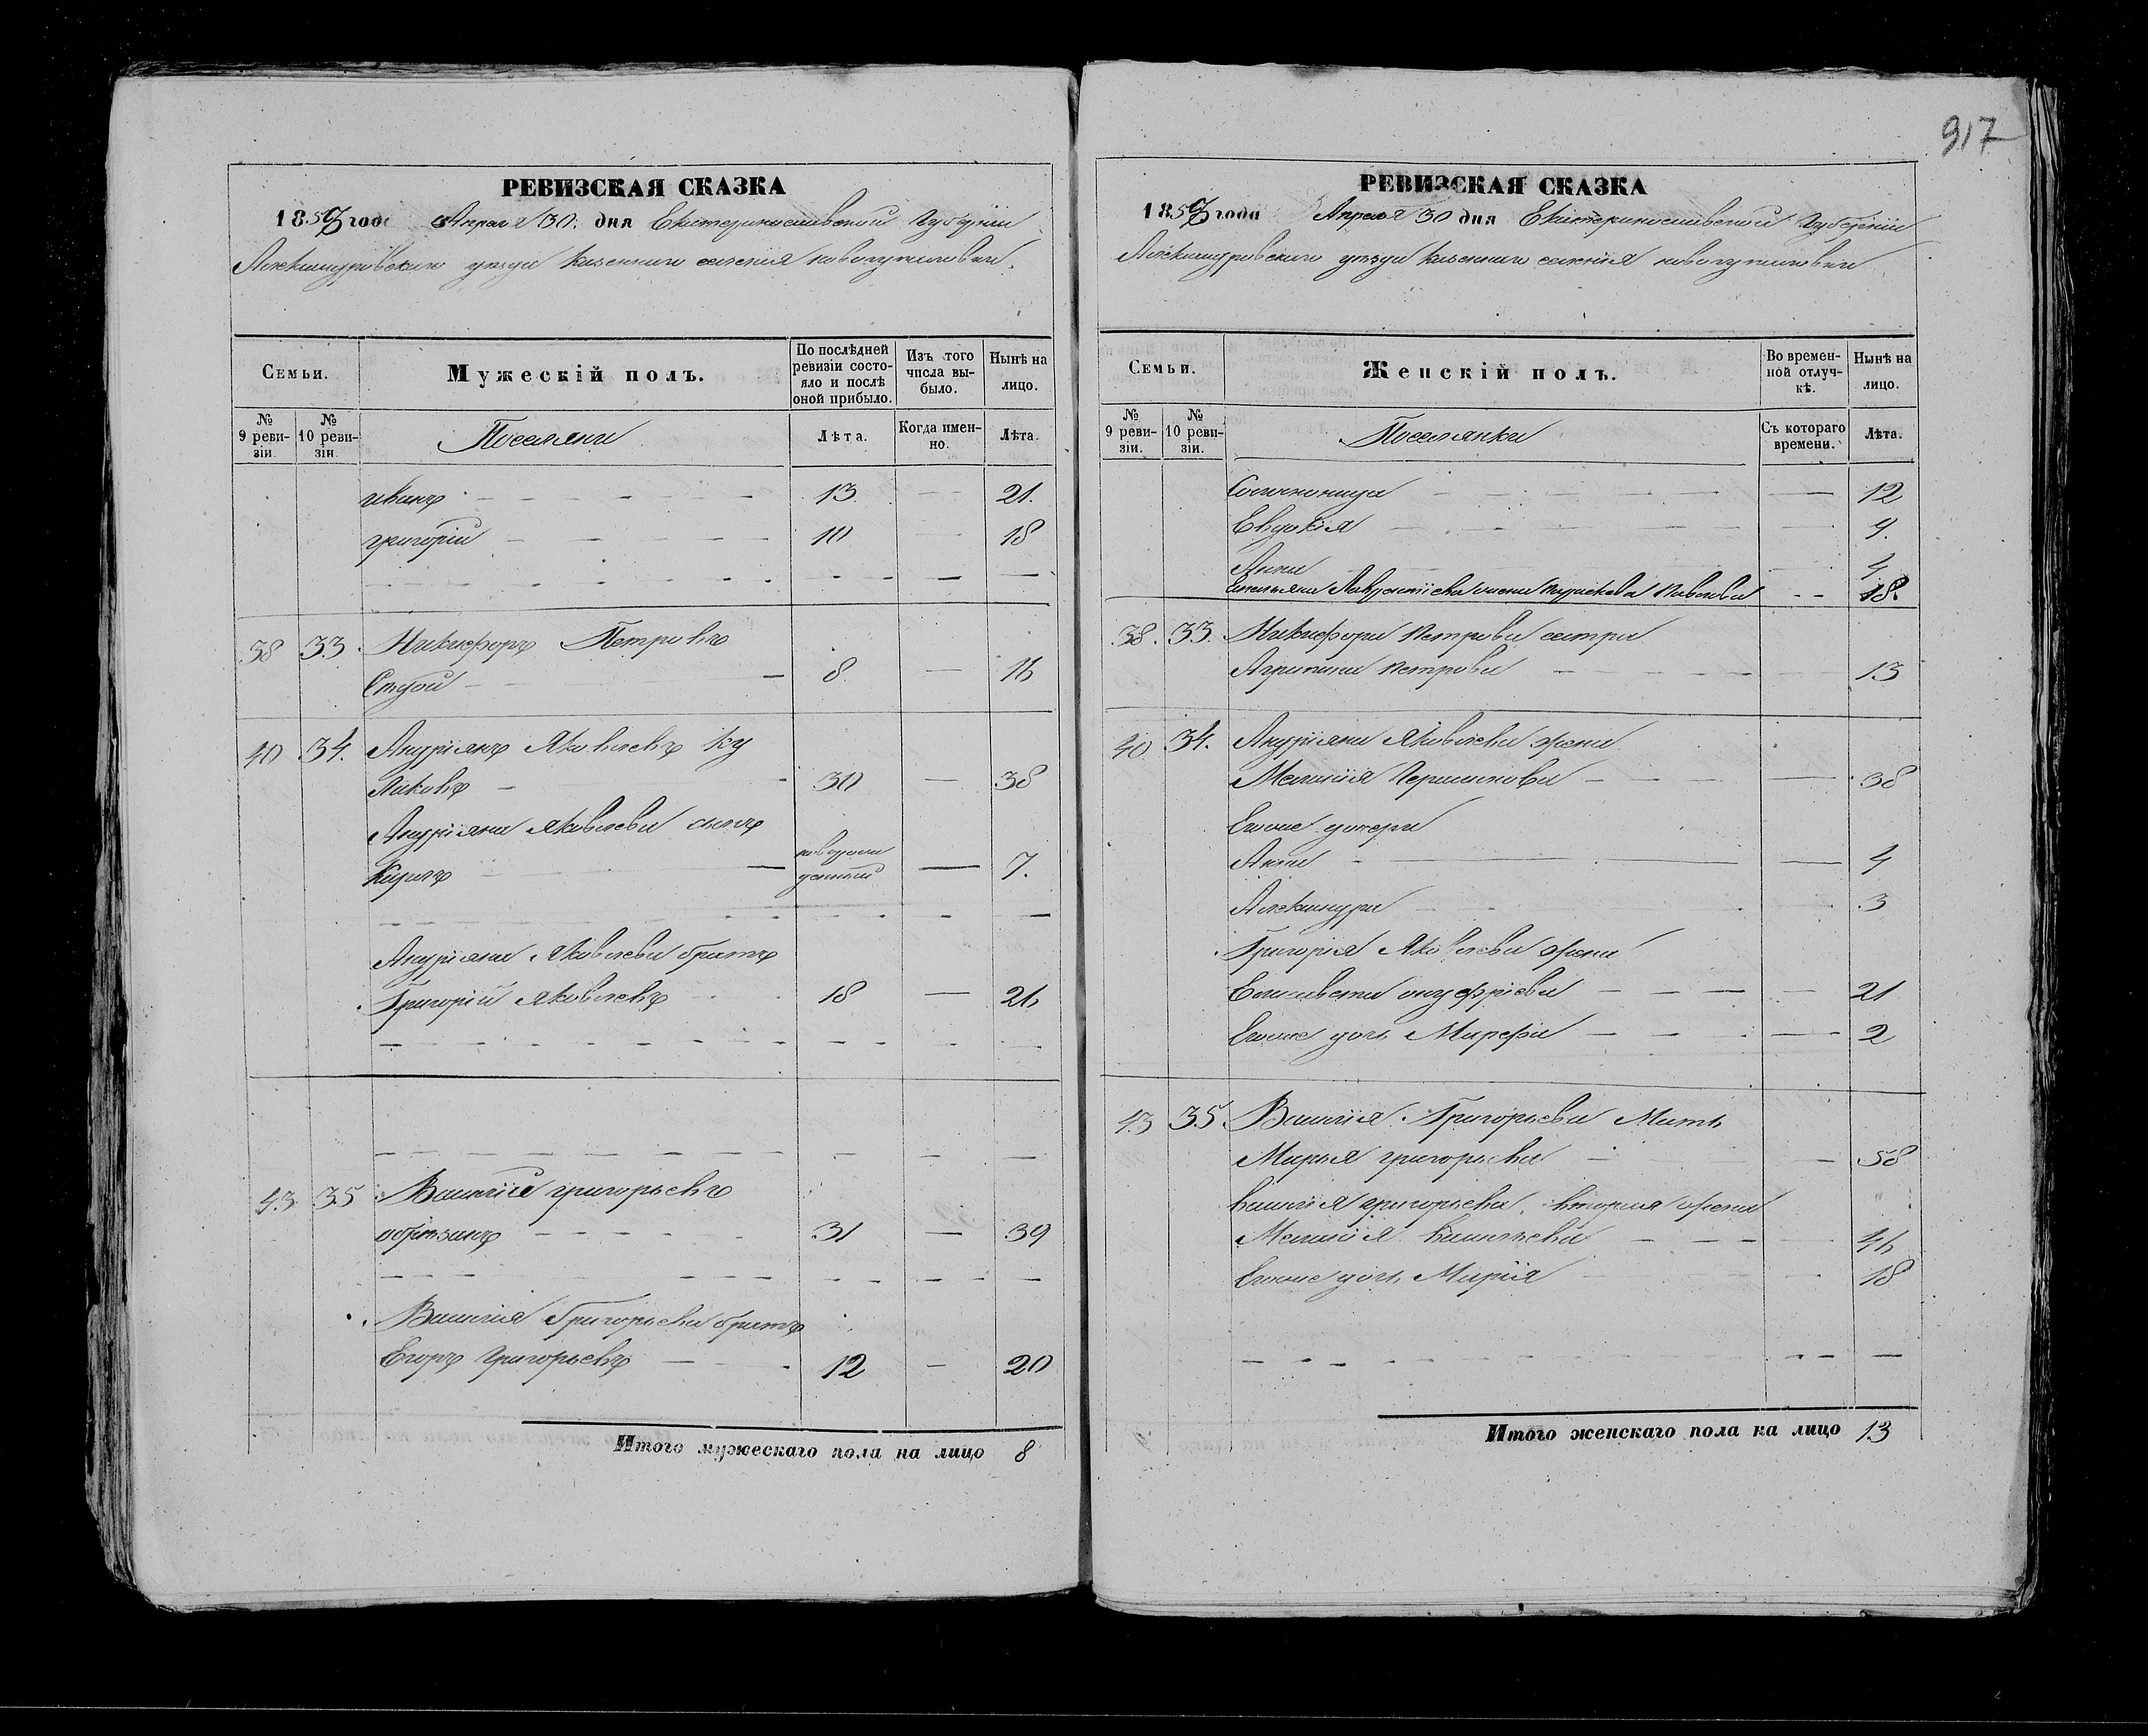 917
РЕВИЗСКАЯ СКАЗКА
1858 года Апреля 30. дня Екатеринославской Губернии
Александровского уезда казенного селения новогупаловки.
Семьи.
Мужескій полъ.
По послѣдней ревизіи состояло и послѣ оной прибыло.
Изъ того числа выбыло.
Нынѣ на лицо.
№ 9 ревизіи.
№ 10 ревизіи.
Поселяни
Лѣта.
Когда именно.
Лѣта.
иванъ 13 21.
григорій 10 18
38 33. Никифоръ Петровъ
8 16
40 34. Андріянъ Яковлевъ Ку
30 38
Андріяна Яковлева сынъ
новорож
Кирилъ денный 7.
Андріяна Яковлева братъ
Григорій Яковлевъ 18 26
43 35 Василій григорьевъ
31 39
Василія Григорьева братъ
Егоръ Григорьевъ 12 20
Итого мужескаго пола на лицо 8
РЕВИЗСКАЯ СКАЗКА
1858 года Апреля 30 дня Екатеринославской Губерніи
Александровского уезда казенного селенія новогупаловки
Семьи.
Женскій полъ.
Во временной отлучкѣ.
Нынѣ на лицо.
№ 9 ревизіи.
№ 10 ревизіи.
Поселянки
Съ котораго времени.
Лѣта.
12
Евдокія 9.
Анна 4
Лаврентіева жена Параскева Павлова 18.
38. 33. Никифора Петрова сестра
Агрипина Петрова 13
40 34. Андріяна Яковлева жена
Меланія 38
Егоже дочери
Анна 4
Александра 3
Григорія Яковлева жена
Елисавета онуфріева 21
Егоже дочь Марфа 2
43 35 Василія Григорьева Мать
Марья григорьева 58
василія григорьева, вторая жена
Меланія васильева 46
Егоже дочь Марія 18
Итого женскаго пола на лицо 13